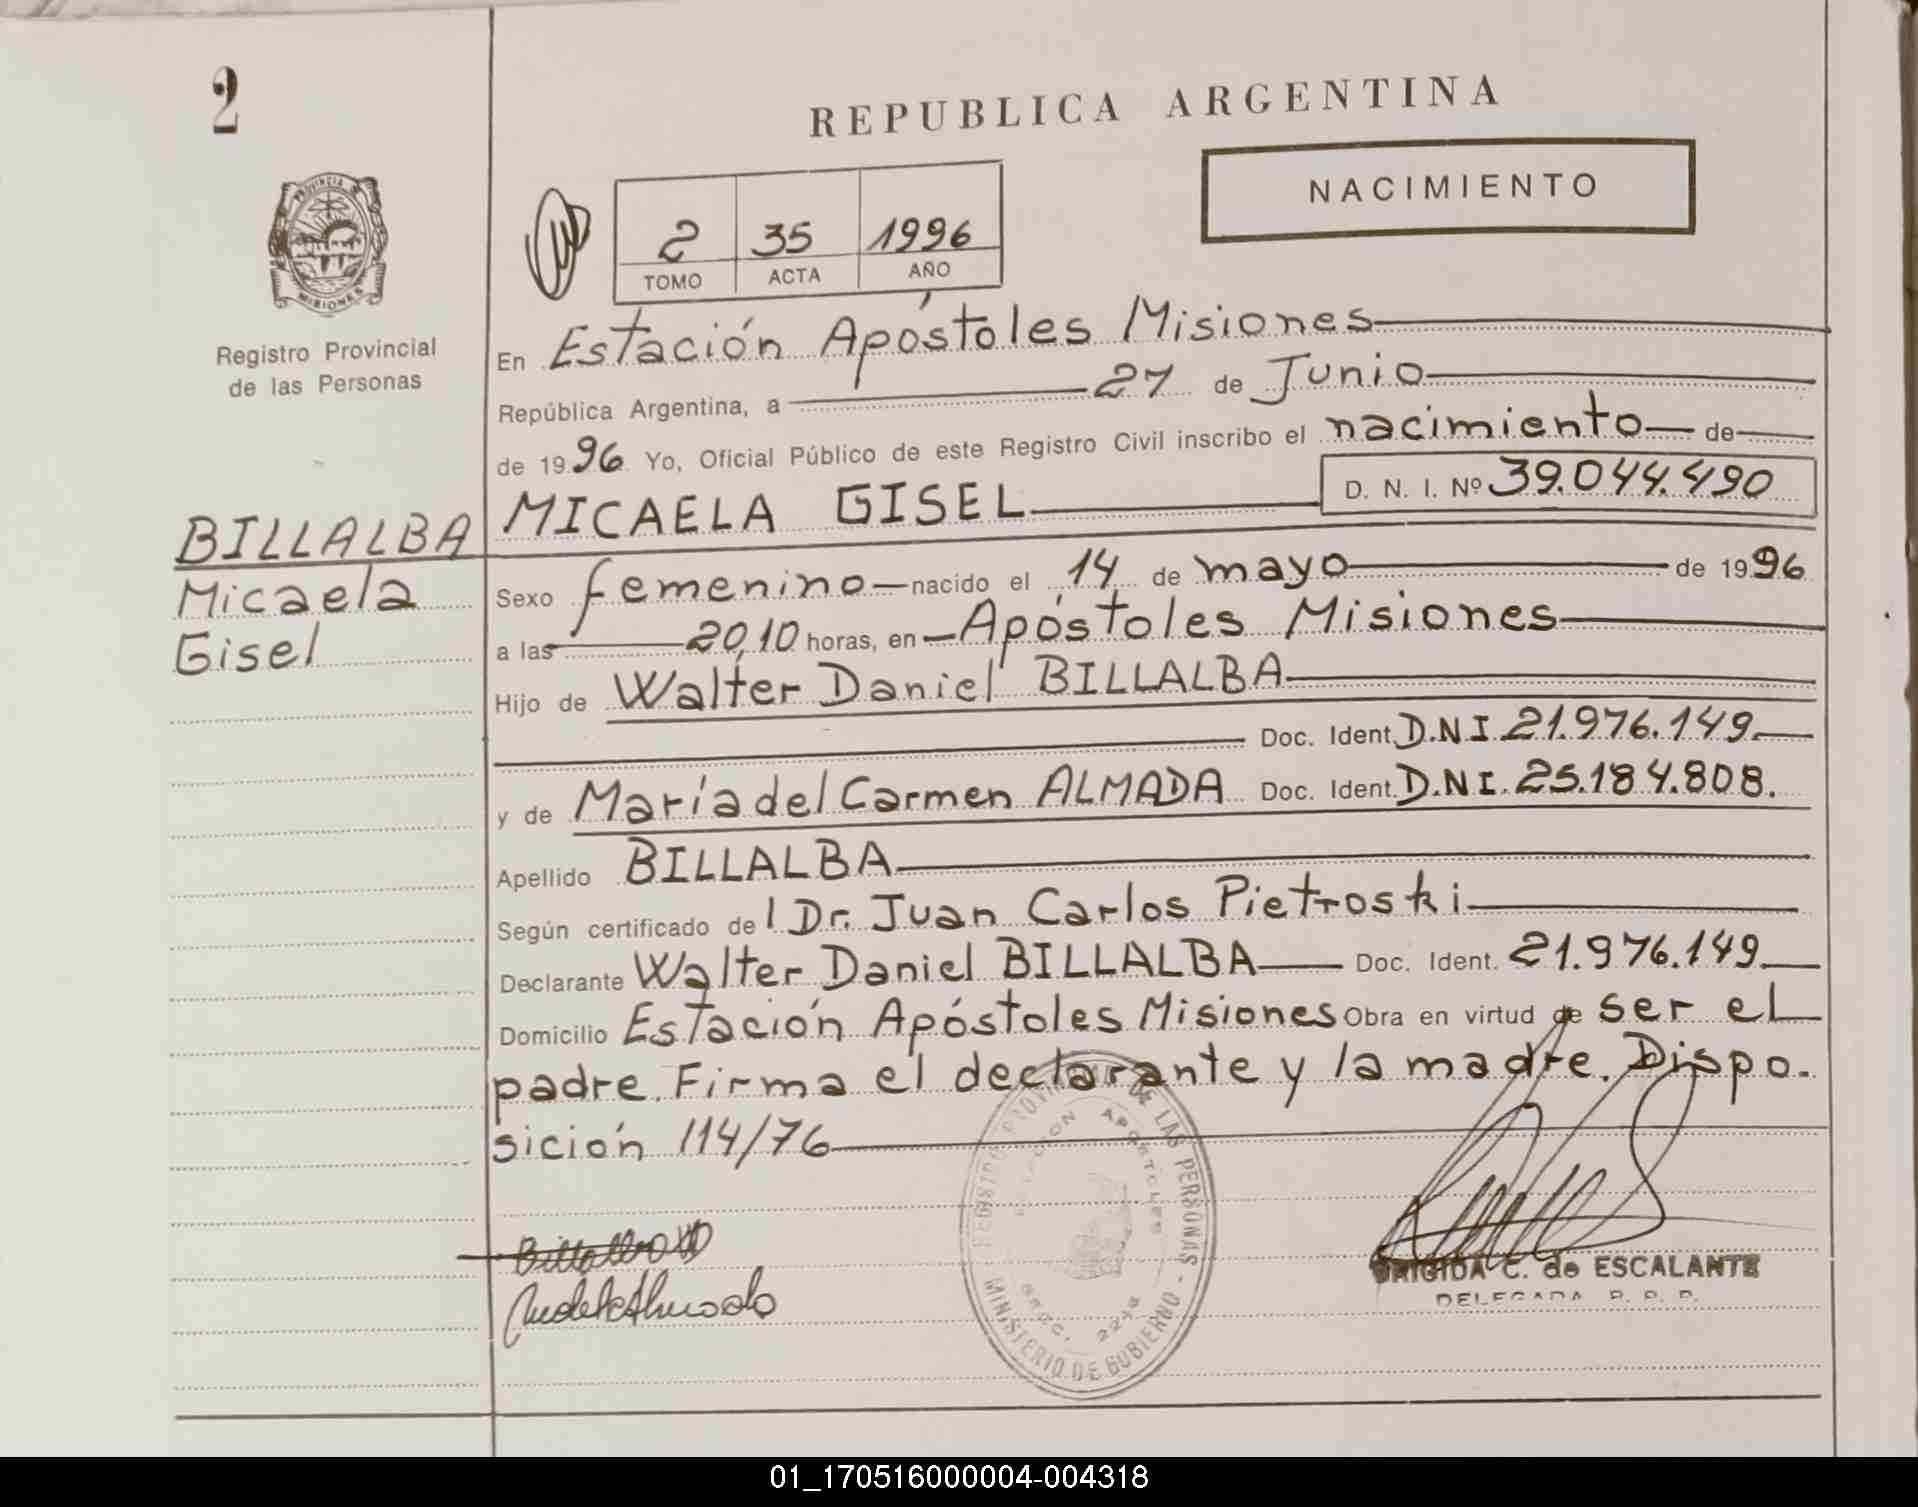 2
REPUBLICA ARGENTINA
NACIMIENTO
PROVINCIA DE
MISIONES
2 35 1996
TOMO ACTA AÑO
Registro Provincial
de las Personas
En Estación Apóstoles Misiones
República Argentina, a 27 de Junio
de 1996 Yo, Oficial Público de este Registro Civil inscribo el nacimiento de
D. N. I. Nº 39.044.490
BILLALBA MICAELA GISEL
Micaela
Gisel
Sexo femenino nacido el 14 de mayo de 1996
a las 20,10 horas, en Apóstoles Misiones
Hijo de Walter Daniel BILLALBA
Doc. Ident. D.N.I. 21.976.149
y de María del Carmen ALMADA Doc. Ident. D.N.I. 25.184.808.
Apellido BILLALBA
Según certificado del Dr. Juan Carlos Pietroski
Declarante Walter Daniel BILLALBA Doc. Ident. 21.976.149
Domicilio Estación Apóstoles Misiones Obra en virtud de ser el
padre. Firma el declarante y la madre. Dispo.
sición 114/76
REGISTRO PROVINCIAL DE LAS PERSONAS - MINISTERIO DE GOBIERNO -
ESTACION APOSTOLES
BRIGIDA C. de ESCALANTE
DELEGADA R. P. P.
01_170516000004-004318